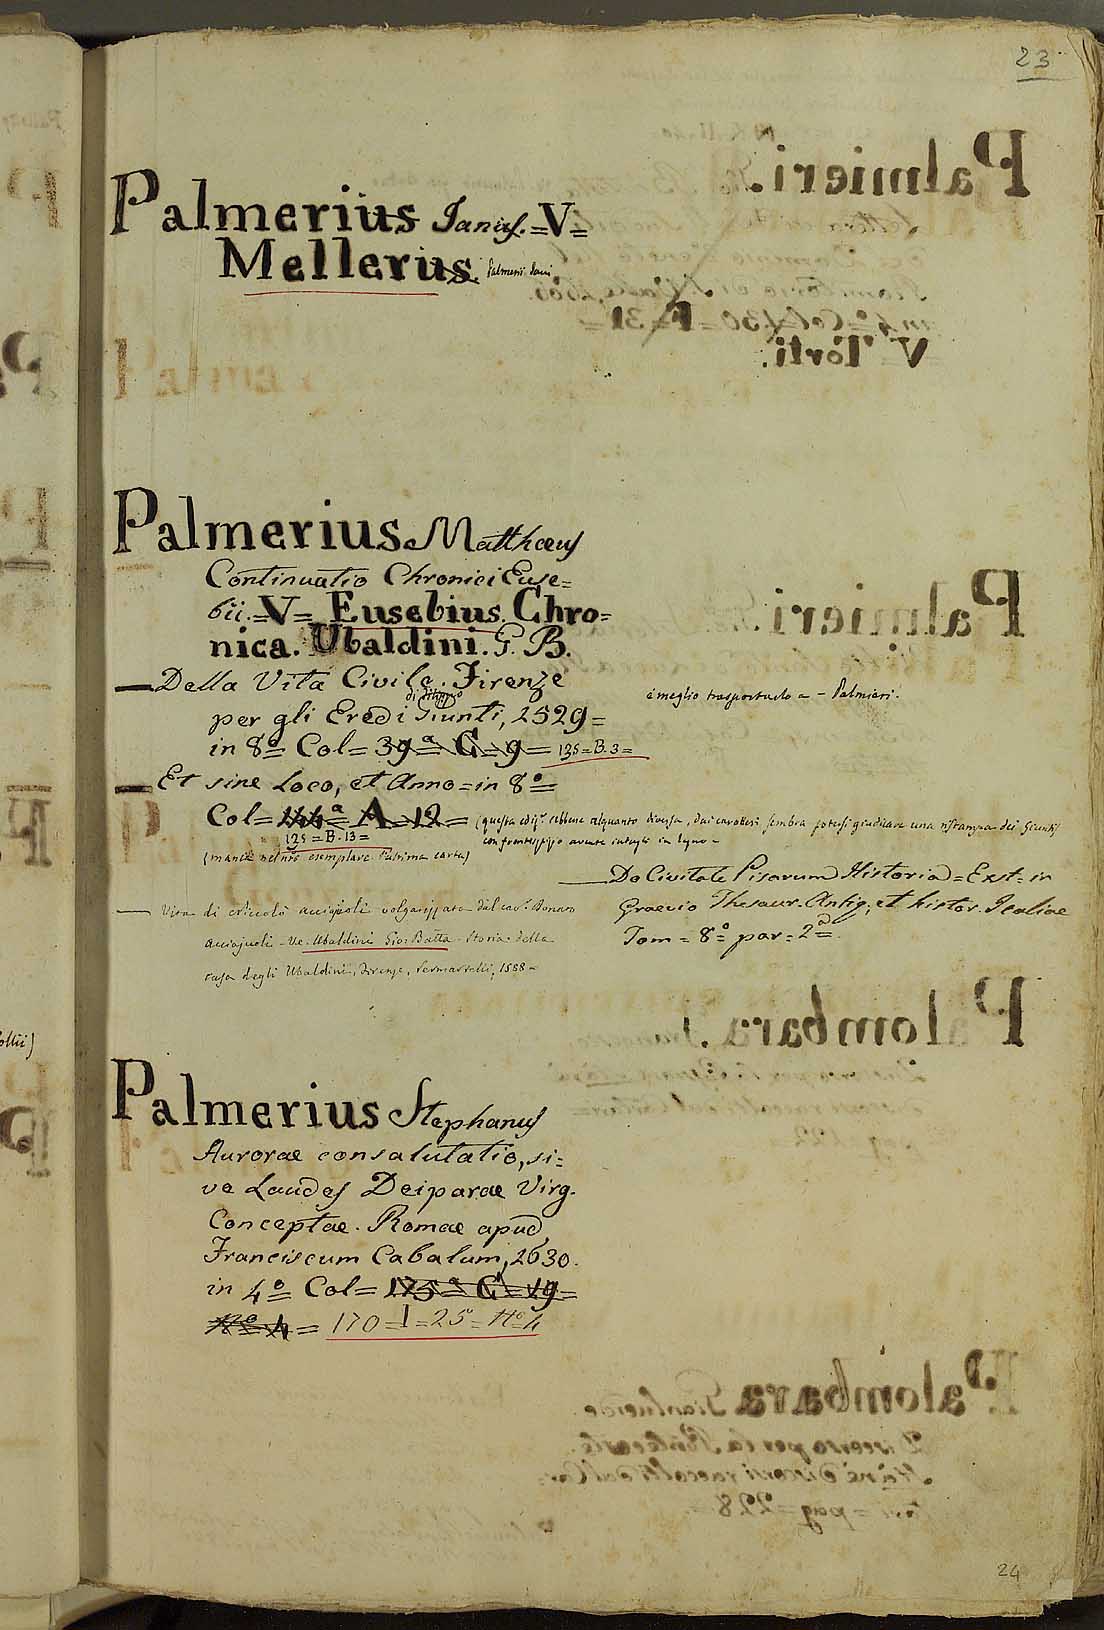 23
Palmerius Janus. =V=
Mellerius. Palmerii Jani
Palmerius Matthaeus
Continuatio Chronici Euse=
bii. =V= Eusebius. Chro=
nica. Ubaldini. G. B.
— Della Vita Civile. Firenze
per gli Eredi di Filippo Giunti, 1529=
in 8º= Col= 39ª= C= 9= 135=B.3=
è meglio trasportarlo a = Palmieri.
— Et sine Loco, et Anno= in 8º=
Col= 144ª= A= 12= (questa ediz.e sebbene alquanto diversa, dai caratteri sembra potersi giudicare una ristampa dei Giunti
con frontespizio avente intagli in legno=
125=B.13=
(manca nel nro esemplare l'ultima carta)
— De Civitate Pisarum Historia= Exst= in
Graevio Thesaur. Antiq, et histor. Italiae
Tom= 8º= par= 2ª=
— Vita di Niccolò Acciajuoli volgarizzata dal cav.r Donato
Acciajuoli= Ve. Ubaldini Gio: Batta Storia della
casa degli Ubaldini, Firenze, Sermartelli, 1588=
Palmerius Stephanus
Aurorae consalutatio, si=
ve Laudes Deiparae Virg.
Conceptae. Romae apud
Franciscum Cabalum, 1630.
in 4º= Col= 175ª= C= 19=
Nº= 4= 170=I=25= Nº 4
24